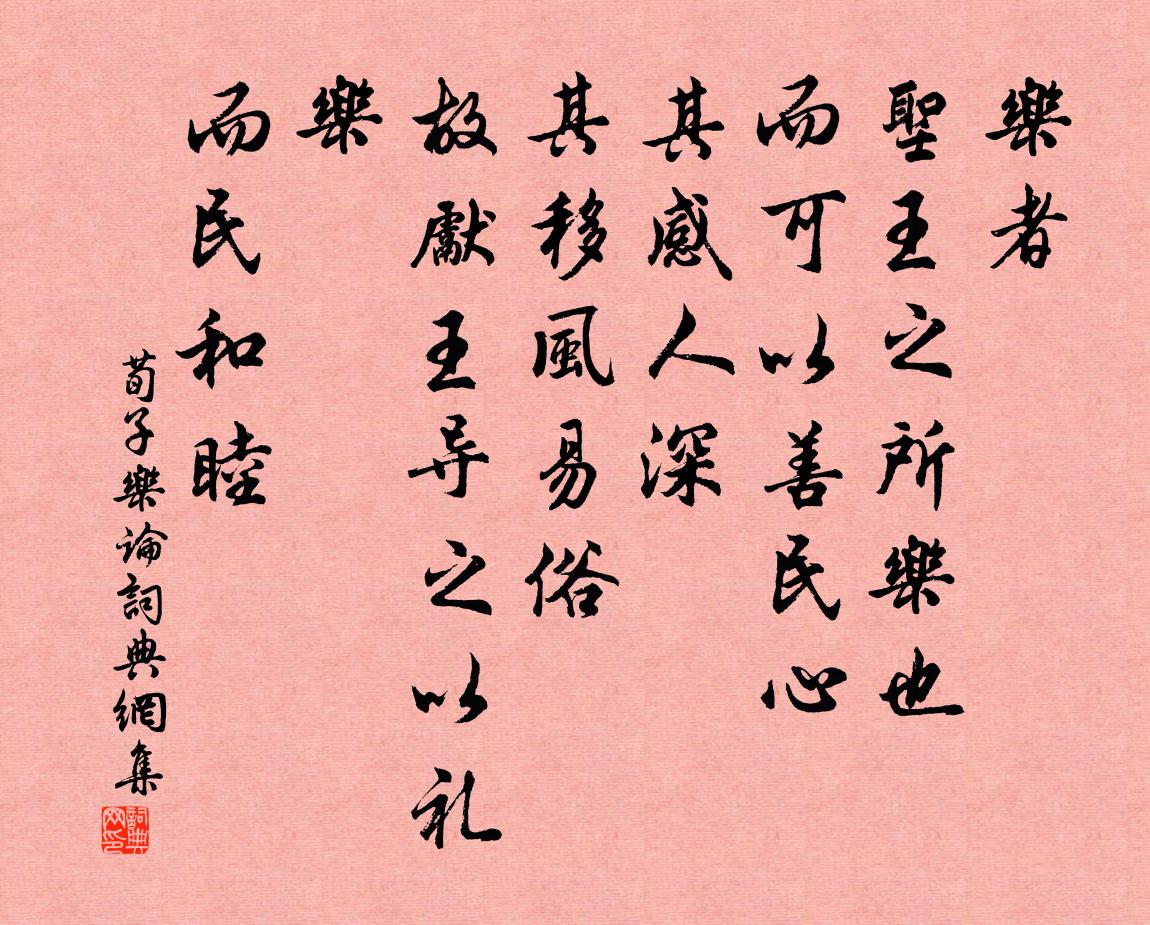 樂者
聖王之所樂也
而可以善民心
其感人深
其移風易俗
故獻王导之以礼
樂
而民和睦
荀子樂论詞典網集
詞典网印